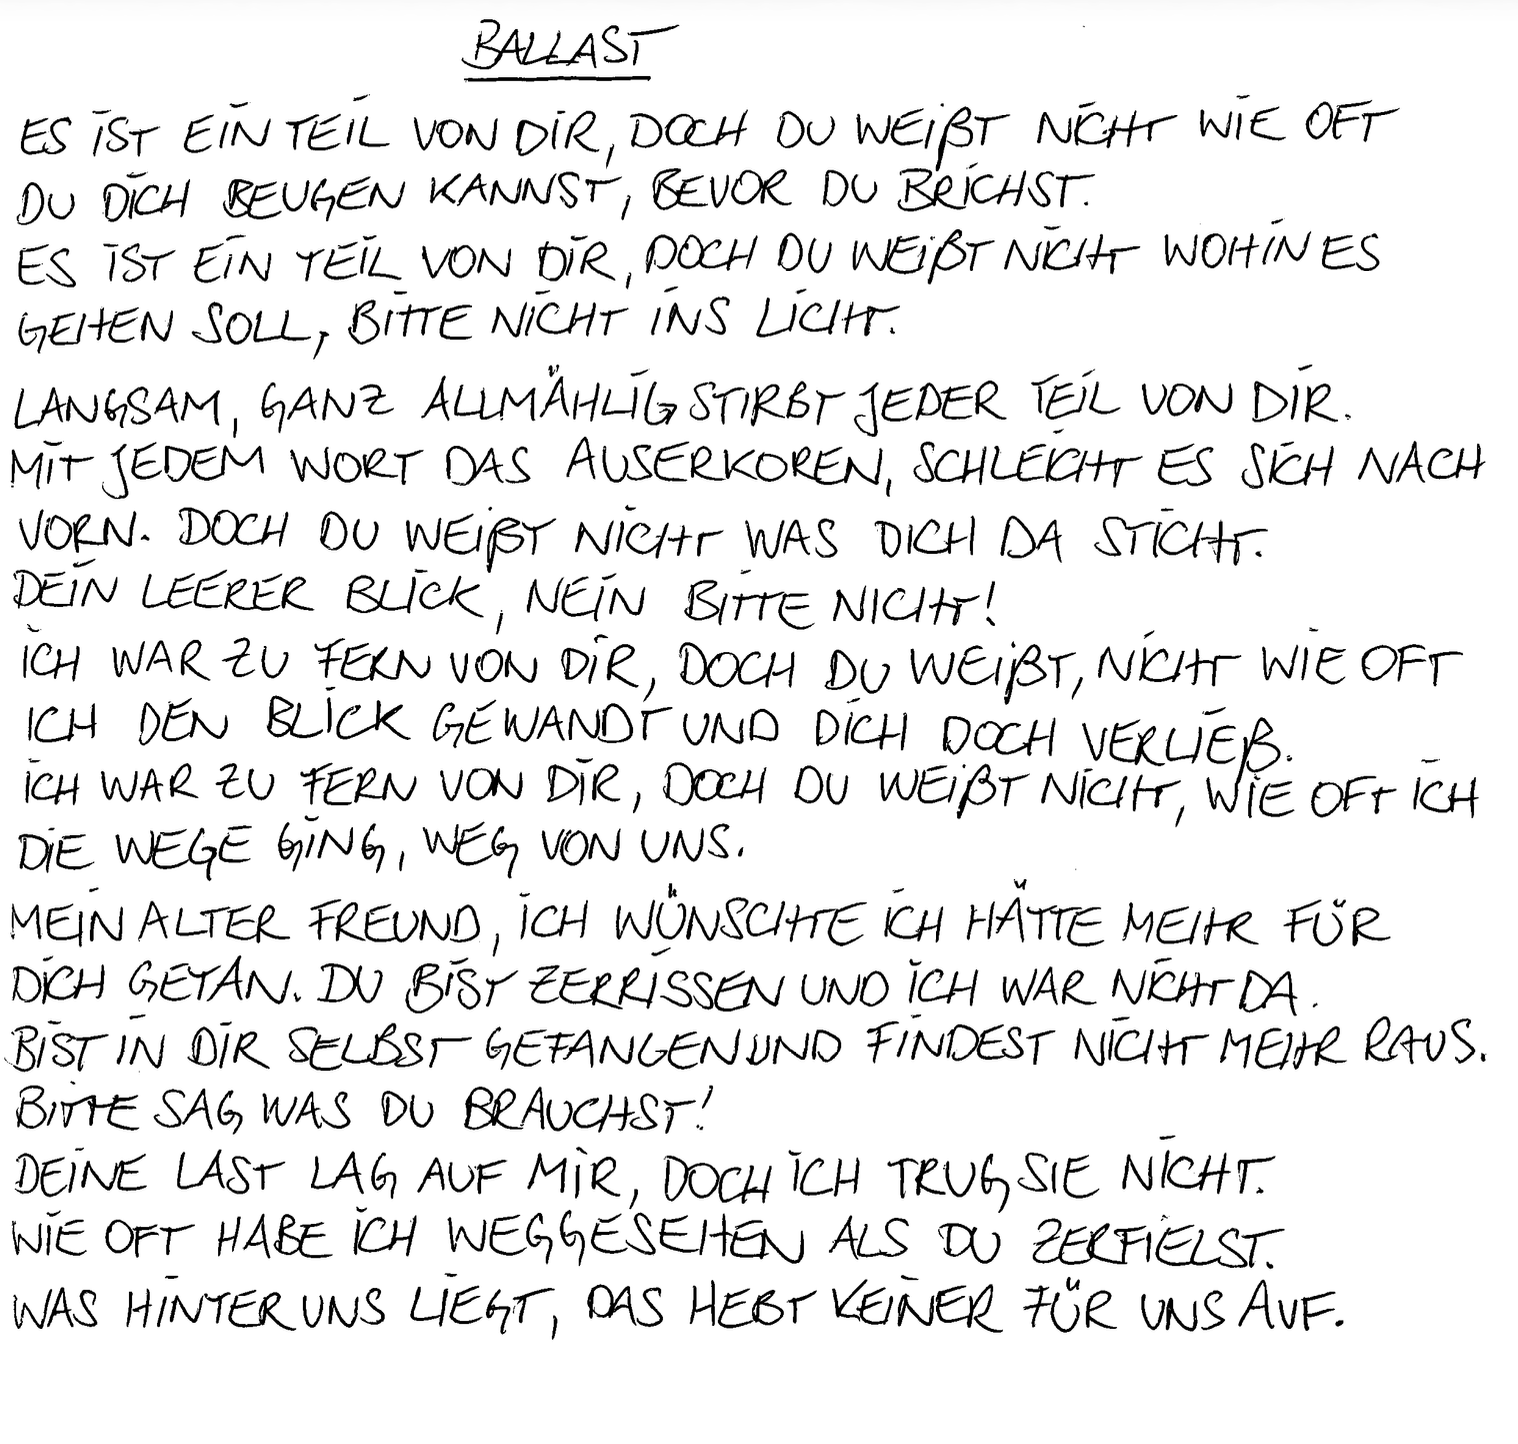 BALLAST
ES IST EIN TEIL VON DIR, DOCH DU WEIßT NICHT WIE OFT
DU DICH BEUGEN KANNST, BEVOR DU BRICHST.
ES IST EIN TEIL VON DIR, DOCH DU WEIßT NICHT WOHIN ES
GEHEN SOLL, BITTE NICHT INS LICHT.
LANGSAM, GANZ ALLMÄHLIG STIRBT JEDER TEIL VON DIR.
MIT JEDEM WORT DAS AUSERKOREN, SCHLEICHT ES SICH NACH
VORN. DOCH DU WEIßT NICHT WAS DICH DA STICHT.
DEIN LEERER BLICK, NEIN BITTE NICHT!
ICH WAR ZU FERN VON DIR, DOCH DU WEIßT, NICHT WIE OFT
ICH DEN BLICK GEWANDT UND DICH DOCH VERLIEß.
ICH WAR ZU FERN VON DIR, DOCH DU WEIßT NICHT, WIE OFT ICH
DIE WEGE GING, WEG VON UNS.
MEIN ALTER FREUND, ICH WÜNSCHTE ICH HÄTTE MEHR FÜR
DICH GETAN. DU BIST ZERRISSEN UND ICH WAR NICHT DA.
BIST IN DIR SELBST GEFANGEN UND FINDEST NICHT MEHR RAUS.
BITTE SAG WAS DU BRAUCHST!
DEINE LAST LAG AUF MIR, DOCH ICH TRUG SIE NICHT.
WIE OFT HABE ICH WEGGESEHEN ALS DU ZERFIELST.
WAS HINTER UNS LIEGT, DAS HEBT KEINER FÜR UNS AUF.